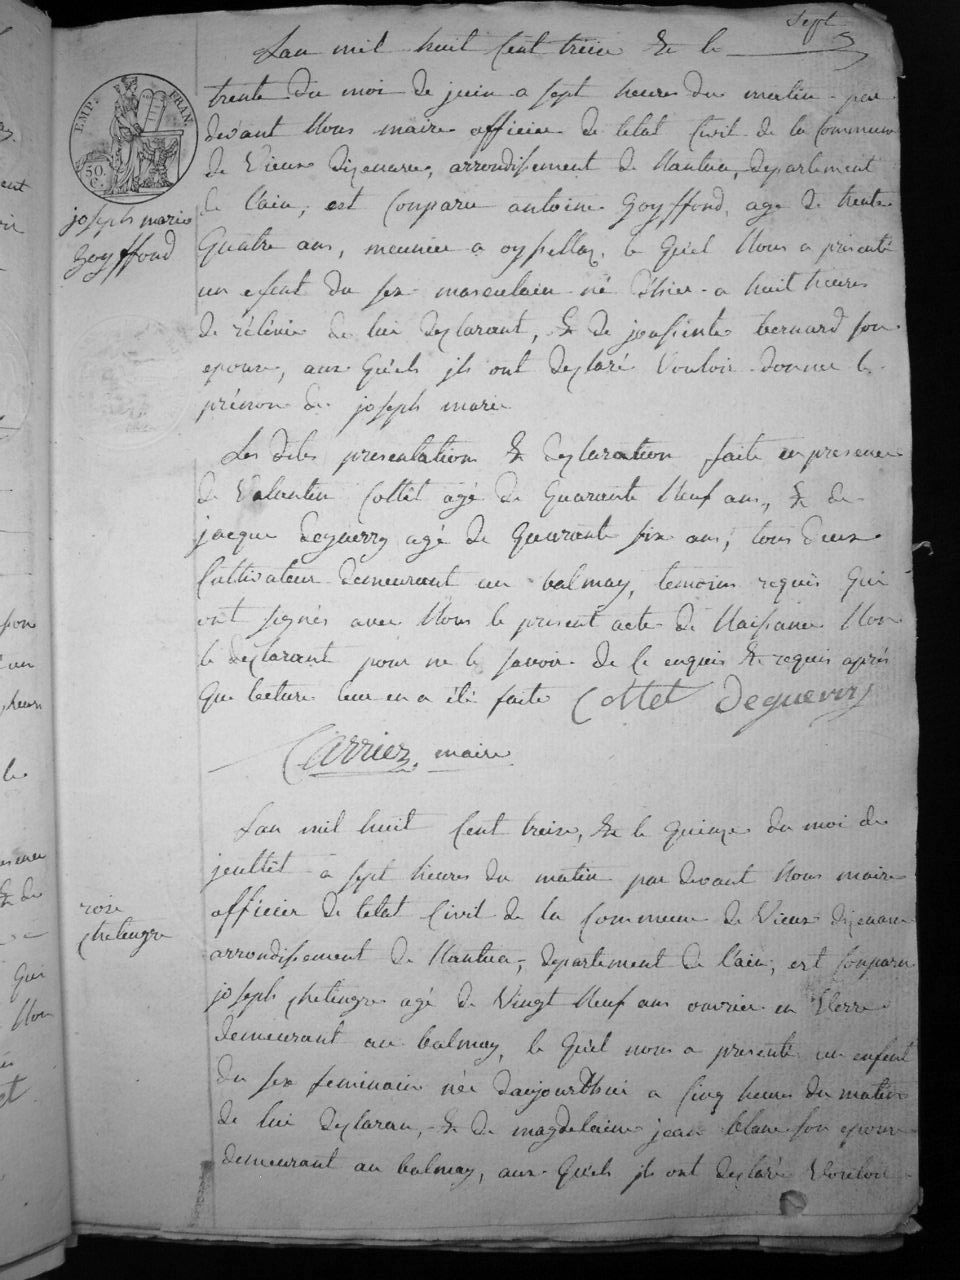 Sept
Lan mil huit Cent treize & le
trente du moi de juin a sept heures du matin par
devant Nous maire officier de letat Civil de la Commune
de Vieux dizenave, arrondissement de Nantua, departement
de l'ain, est Comparu antoine Goyffond, age de trente
EMP. FRAN.
50. C.
joseph marie
Goyffond
Quatre ans, meunier a oysellaz, le Quel Nous a présenté
un efent du sex masculain né d'hier a huit heures
de lui deglarant, & de josfiente bernard son
epouse, aux Quels jls ont deglaré Vouloir donner le
prénon de joseph marie
Les dites presentation & deglaration faite en presence
de Valantin Collet agé de Quarante Neuf ans, & de
jacque deguerry agé de Quarante six ans, tous deux
Cultivateur demeurant au balmay, temoins requis Qui
ont signés avec Nous le present acte de Naisance Non
le deglarant pour ne le savoir de Ce enquis & requis aprés
Que lecture leur en a été faite Collet Deguerry
Carrier, maire
Lan mil huit Cent treize, & le Quinze du moi de
jeullêt à sept heures du matin par devant Nous maire
officier de letat Civil de la Commune de Vieux dizenave
rose
ghetengre
arrondissement de Nantua, departement de l'ain, est Comparu
joseph ghetengre agé de Vingt Neuf ans ouvrier en Verre
demeurant au balmay, le Quel nous a presenté un enfent
du sex feminain née daujourdhui a Cinq heures du matin
de lui deglaran, & de magdelaine jean blanc son epouse
demeurant au balmay, aux Quels jls ont deglaré Vouloir